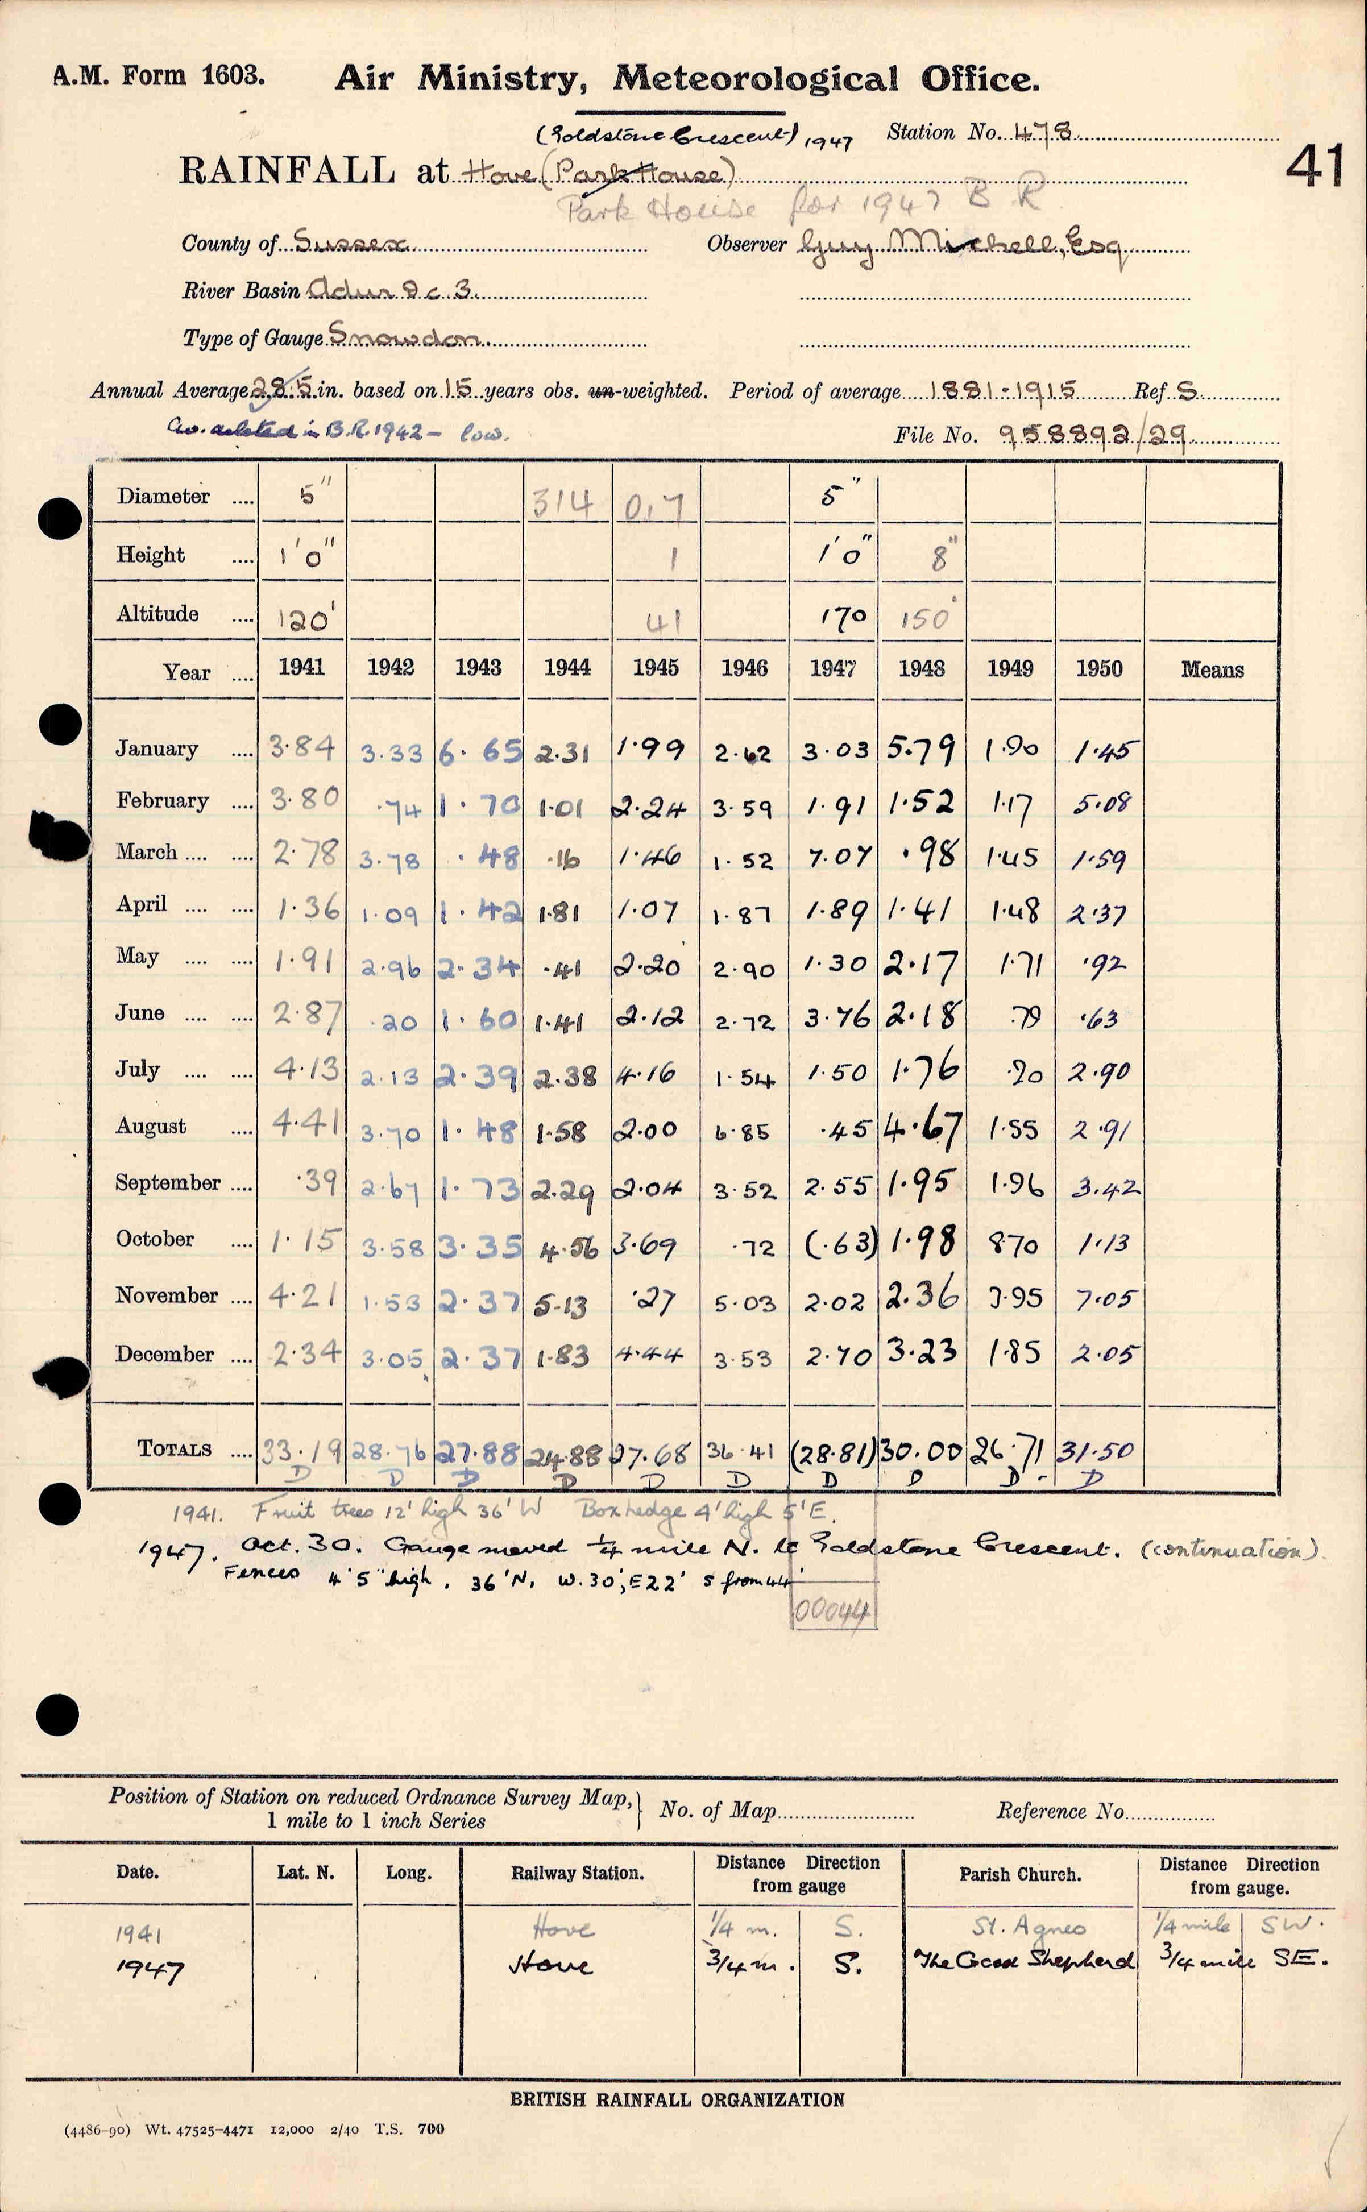 A.M. Form 1603. Air Ministry, Meteorological Office.
(Goldstone Crescent) 1947 Station No. 478
41
RAINFALL at Hove (Park House)
Park House for 1947 B R
County of Sussex Observer Guy Mitchell, Esq
River Basin Adur &c. 3.
Type of Gauge Snowdon.
Annual Average 28.5 in. based on 15 years obs. un-weighted. Period of average 1881-1915 Ref S
Av. deleted in B.R. 1942 - low. File No. 958892/29
Diameter .... 5" 314 0,7 5"
Height .... 1'0" 1 1'0" 8"
Altitude .... 120' 41 170 150'
Year .... 1941 1942 1943 1944 1945 1946 1947 1948 1949 1950 Means
January .... 3.84 3.33 6.65 2.31 1.99 2.62 3.03 5.79 1.90 1.45
February .... 3.80 .74 1.70 1.01 2.24 3.59 1.91 1.52 1.17 5.08
March .... .... 2.78 3.78 .48 .16 1.46 1.52 7.07 .98 1.45 1.59
April .... .... 1.36 1.09 1.42 1.81 1.07 1.87 1.89 1.41 1.48 2.37
May .... .... 1.91 2.96 2.34 .41 2.20 2.90 1.30 2.17 1.71 .92
June .... .... 2.87 .20 1.60 1.41 2.12 2.72 3.76 2.18 .79 .63
July .... .... 4.13 2.13 2.39 2.38 4.16 1.54 1.50 1.76 .20 2.90
August .... 4.41 3.70 1.48 1.58 2.00 6.85 .45 4.67 1.55 2.91
September .... .39 2.67 1.73 2.29 2.04 3.52 2.55 1.95 1.96 3.42
October .... 1.15 3.58 3.35 4.56 3.69 .72 (.63) 1.98 8.70 1.13
November .... 4.21 1.53 2.37 5.13 .27 5.03 2.02 2.36 3.95 7.05
December .... 2.34 3.05 2.37 1.83 4.44 3.53 2.70 3.23 1.85 2.05
TOTALS .... 33.19 28.76 27.88 24.88 27.68 36.41 (28.81) 30.00 26.71 31.50
D D D D D D D D D D
1941. Fruit trees 12' high 36' W Box hedge 4' high 5' E.
1947. Oct. 30. Gauge moved 1/4 mile N. to Goldstone Crescent. (continuation).
Fences 4'5" high. 36' N. W. 30', E 22' S from 44'
00044
Position of Station on reduced Ordnance Survey Map, 1 mile to 1 inch Series } No. of Map Reference No.
Date. Lat. N. Long. Railway Station. Distance Direction from gauge Parish Church. Distance Direction from gauge.
1941 Hove 1/4 m. S. St. Agnes 1/4 mile SW.
1947 Hove 3/4 m. S. The Good Shepherd 3/4 mile SE.
BRITISH RAINFALL ORGANIZATION
(4486-90) Wt. 47525-4471 12,000 2/40 T.S. 700